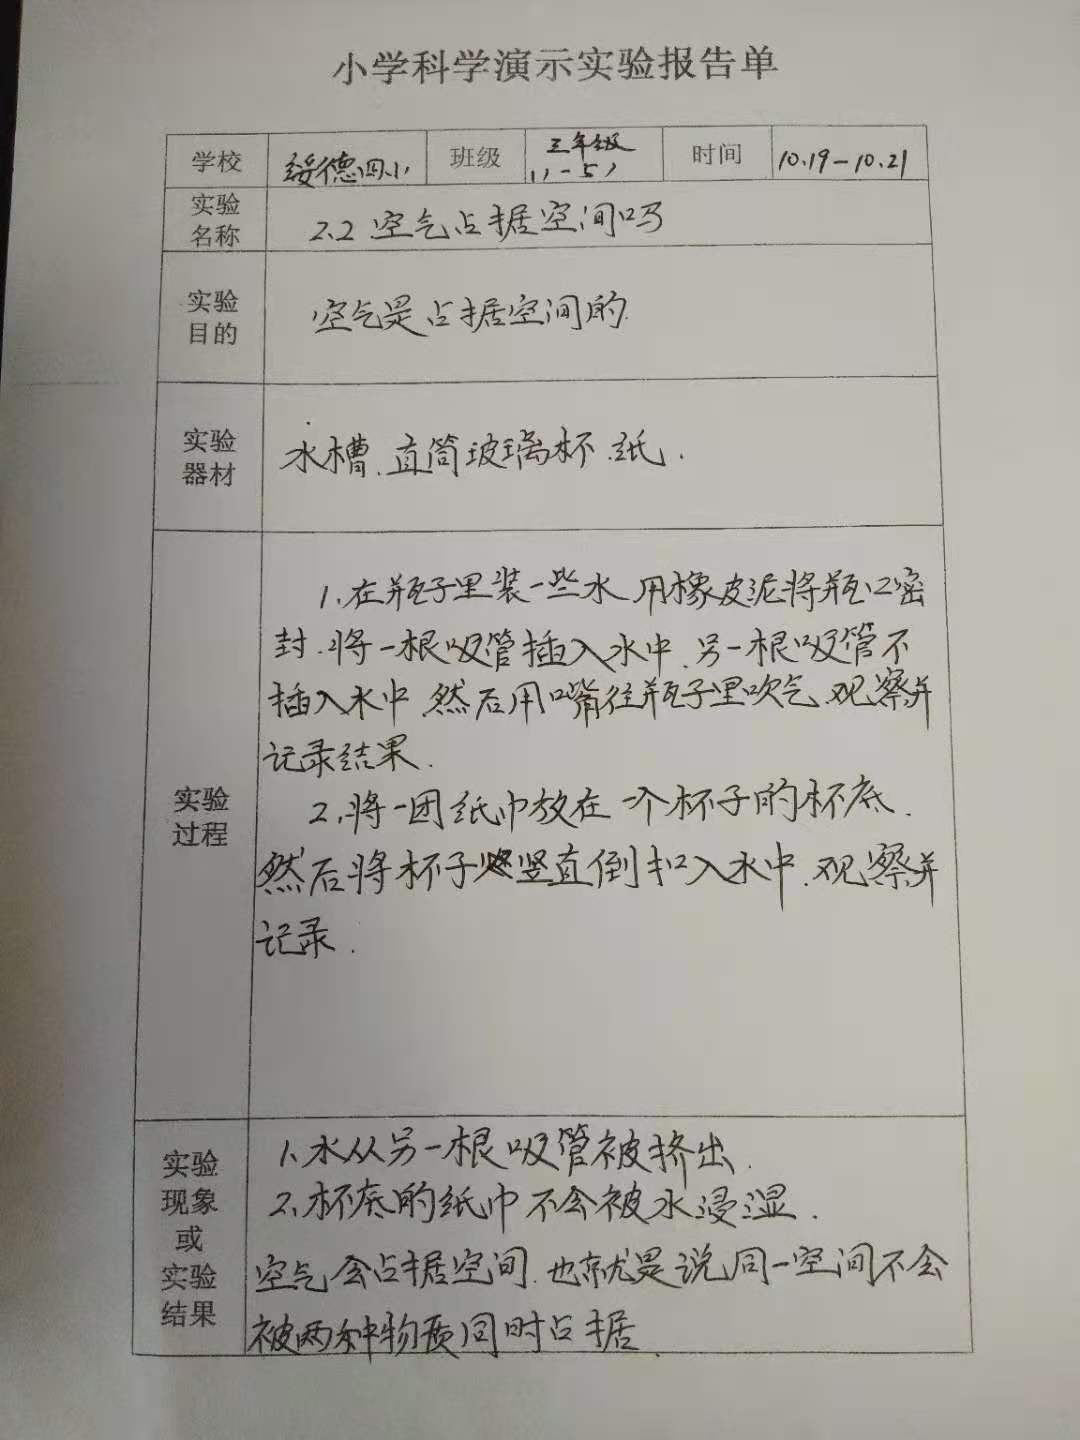 小学科学演示实验报告单
学校 绥德四小 班级 三年级 (1-5) 时间 10.19-10.21
实验名称 2.2 空气占据空间吗
实验目的 空气是占据空间的.
实验器材 水槽、直筒玻璃杯、纸.
实验过程
1.在瓶子里装一些水 用橡皮泥将瓶口密
封.将一根吸管插入水中.另一根吸管不
插入水中.然后用嘴往瓶子里吹气.观察并
记录结果.
2.将一团纸巾放在一个杯子的杯底.
然后将杯子竖直倒扣入水中.观察并
记录.
实验现象或实验结果
1.水从另一根吸管被挤出.
2.杯底的纸巾不会被水浸湿.
空气会占据空间.也就是说同一空间不会
被两种物质同时占据.